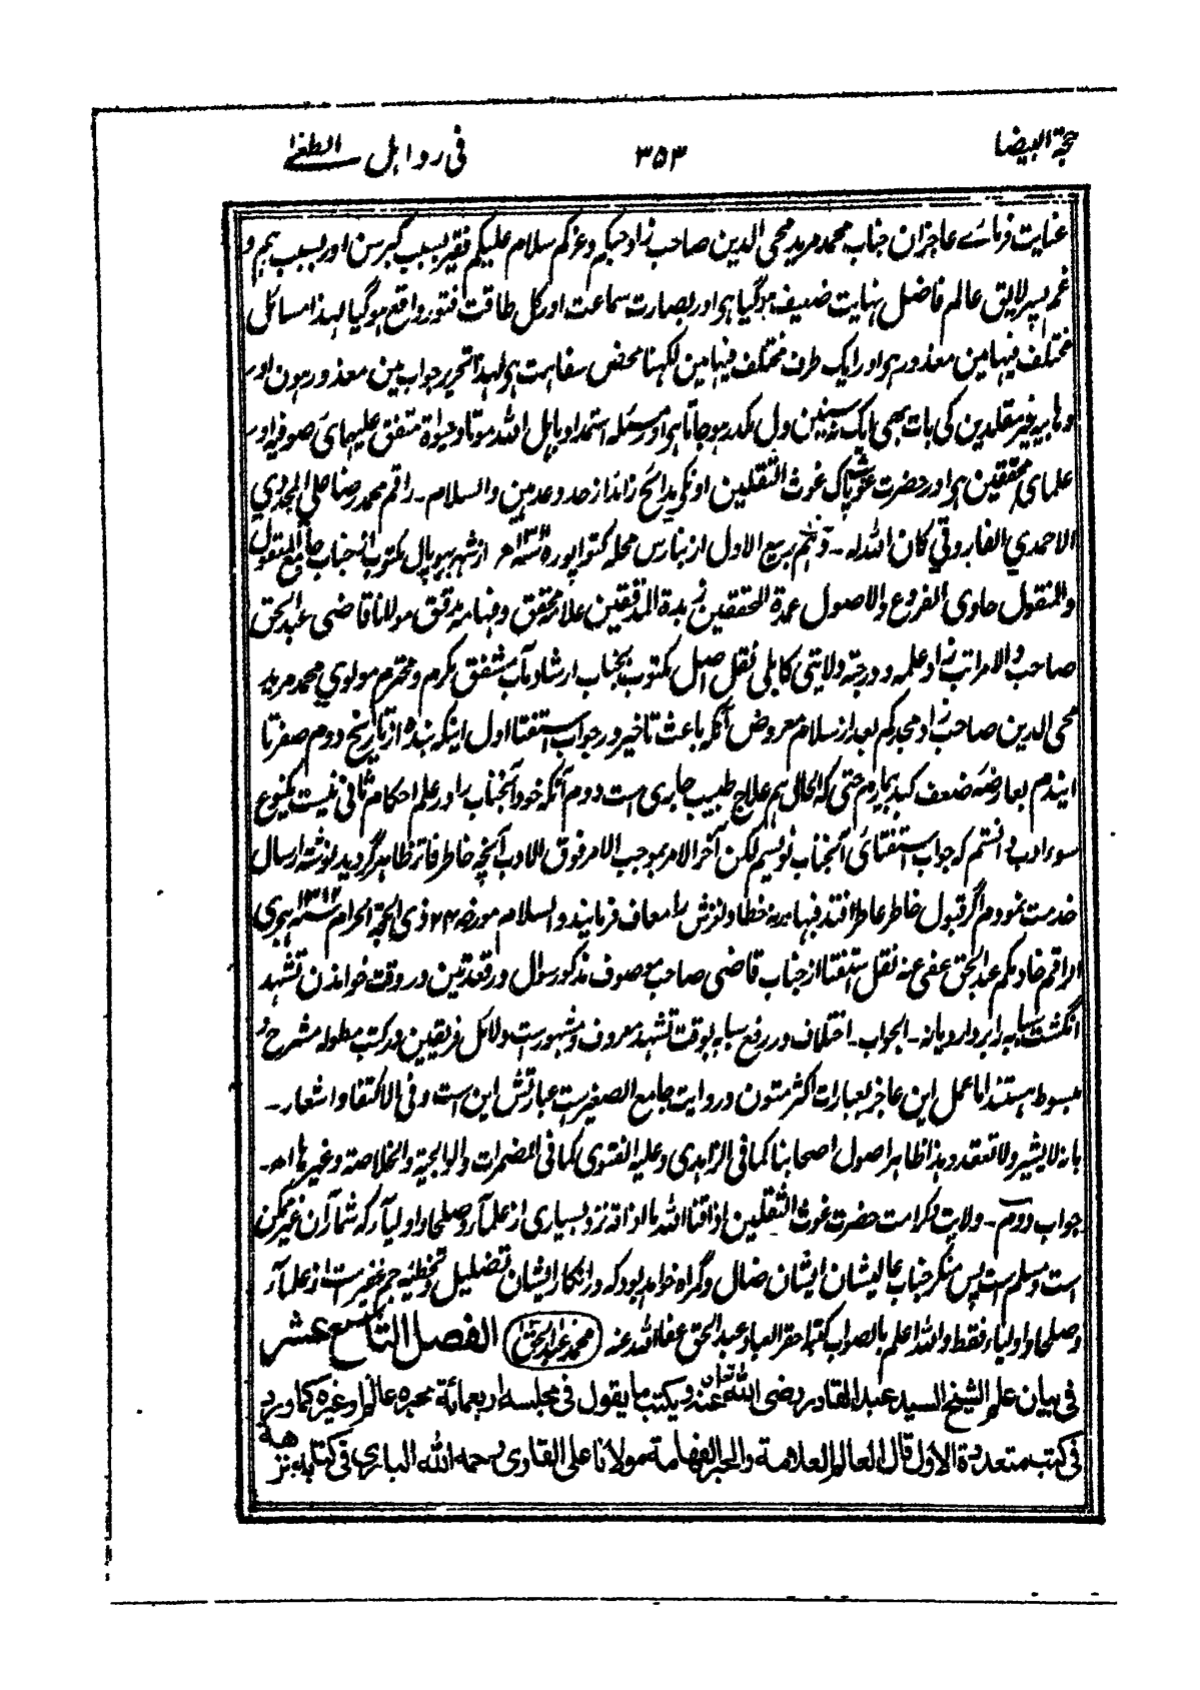 حجة البيضا ٣٥٣ فى رد اهل الطغى
عنايت فرمائے عاجزان جناب محمد مريد محى الدين صاحب زاد حبكم وعزكم سلام عليكم فقير بسبب كبر سن اور بسبب ہم و
غم پسر لايق عالم فاضل نہايت ضعيف ہوگيا ہو اور بصارت سماعت اور كل طاقت فتور واقع ہوگيا لہذا مسائل
مختلف فيہا مين معذور ہو اور ايک طرف مختلف فيہا مين لكہنا محض سفاہت ہو لہذا تحرير جواب مين معذور ہون اور
وہابيہ غير مقلدين كى بات بھى ايک سنين دل مكدر ہو جاتا ہو اور مسئله استمداد باہل الله موتا وحيوة متفق عليہاى صوفيہ اور
علماى محققين ہو اور حضرت غوث پاک غوث الثقلين اونكى مدائح زائد از حد وعد ہين والسلام ۔ راقم محمد رضا على المجددي
الاحمدي الفاروقي كان الله له ۔ نہم ربيع الاول از بنارس محله كتواپوره ہجر از شہر بهوپال مكتوب جناب جامع المعقول
والمنقول حاوى الفروع والاصول عمدة المحققين زبدة المدققين علامه محقق وفہامه مدقق مولانا قاضى عبد الحق
صاحب والا مراتب زاد علمه ودرجته ولايتى كابلى نقل اصل مكتوب بجناب ارشاد مآب مشفق مكرم ومحترم مولوي محمد مريد
محى الدين صاحب زاد مجدكم بعد از سلام معروض آنكه باعث تاخير در جواب استفتا اول اينكه بنده از تاريخ دوم صفر تا
ايندم بعارضه ضعف كبد بيمارم حتى كه الحال ہم علاج طبيب جارى است دوم آنكه خود آنجناب را در علم احكام ثانى نيست يكنوع
سوء ادب دانستم كه جواب استفتائى آنجناب نويسم لكن آخر الامر بموجب الامر فوق الادب آنچه خاطر فاتر ظاہر گرديد نوشته ارسال
خدمت نمودم اگر قبول خاطر عاطر افتد فبہا ورنه خطا ولغزش را معاف فرمايند والسلام مورخه ٢٤ ذى الحجة الحرام سنه ١٣١٢ ہجرى
الراقم خادمكم عبد الحق عفى عنه نقل استفتا از جناب قاضى صاحب موصوف مذكور سوال در قعدتين در وقت خواندن تشہد
انگشت سبابه را بردارد يا نه ۔ الجواب ۔ اختلاف در رفع سبابه بوقت تشہد معروف ومشہور ست ودلائل فريقين در كتب مطوله مشرح و
مبسوط ہستند اما عمل اين عاجز بعبارات اكثر متون وروايت جامع الصغير ست عبارتش اين است وفى الاكتفا واشعار ۔
بانه لا يشير ولا تعقد وہذا ظاہر اصول اصحابنا كما فى الزاہدى وعليه الفتوى كما فى المضمرات والولوالجية والخلاصة وغيرہا اھ ۔
جواب دوم ۔ ولايت وكرامت حضرت غوث الثقلين اذاقنا الله بالذاقه نزد بسيارى از علمآء وصلحا واوليآء كه شمار آن غير ممكن
است ومسلم است پس منكر جناب عاليشان ايشان ضال وگمراه خواہد بود كه در انكار ايشان تضليل وتخطئه جم غفير ست از علمآء
وصلحا واولياء فقط والله اعلم بالصواب كتبه احقر العباد عبد الحق عفا الله عنه محمد عبد الحق الفصل التاسع عشر
فى بيان علم الشيخ السيد عبد القادر رضى الله تعالى عنه ويكتب ما يقول فى مجلسه اربعمائة محبرة عالم وغيره كما ورد
فى كتب متعددة الاول قال العالم العلامة والحبر الفهامة مولانا على القارى رحمه الله البارى فى كتابه نزهة